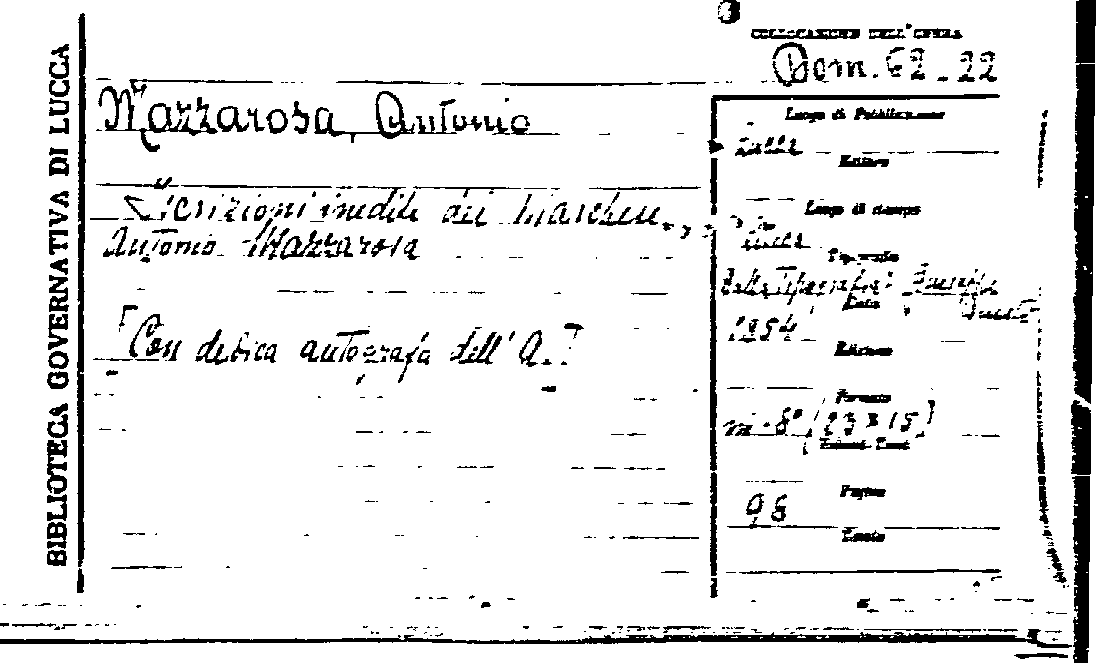 BIBLIOTECA GOVERNATIVA DI LUCCA
COLLOCAZIONE DELL'OPERA
Dom. 62-22
Mazzarosa, Antonio
Iscrizioni inedite del Marchese
Antonio Mazzarosa
[Con dedica autografa dell'A.]
Luogo di Pubblicazione
Lucca
Editore
Luogo di stampa
Lucca
Tipografia
dalla Tipografia Giuseppe
Data
1854
Edizione
Formato
in-8° (23x15)
Pagine
98
Tavole